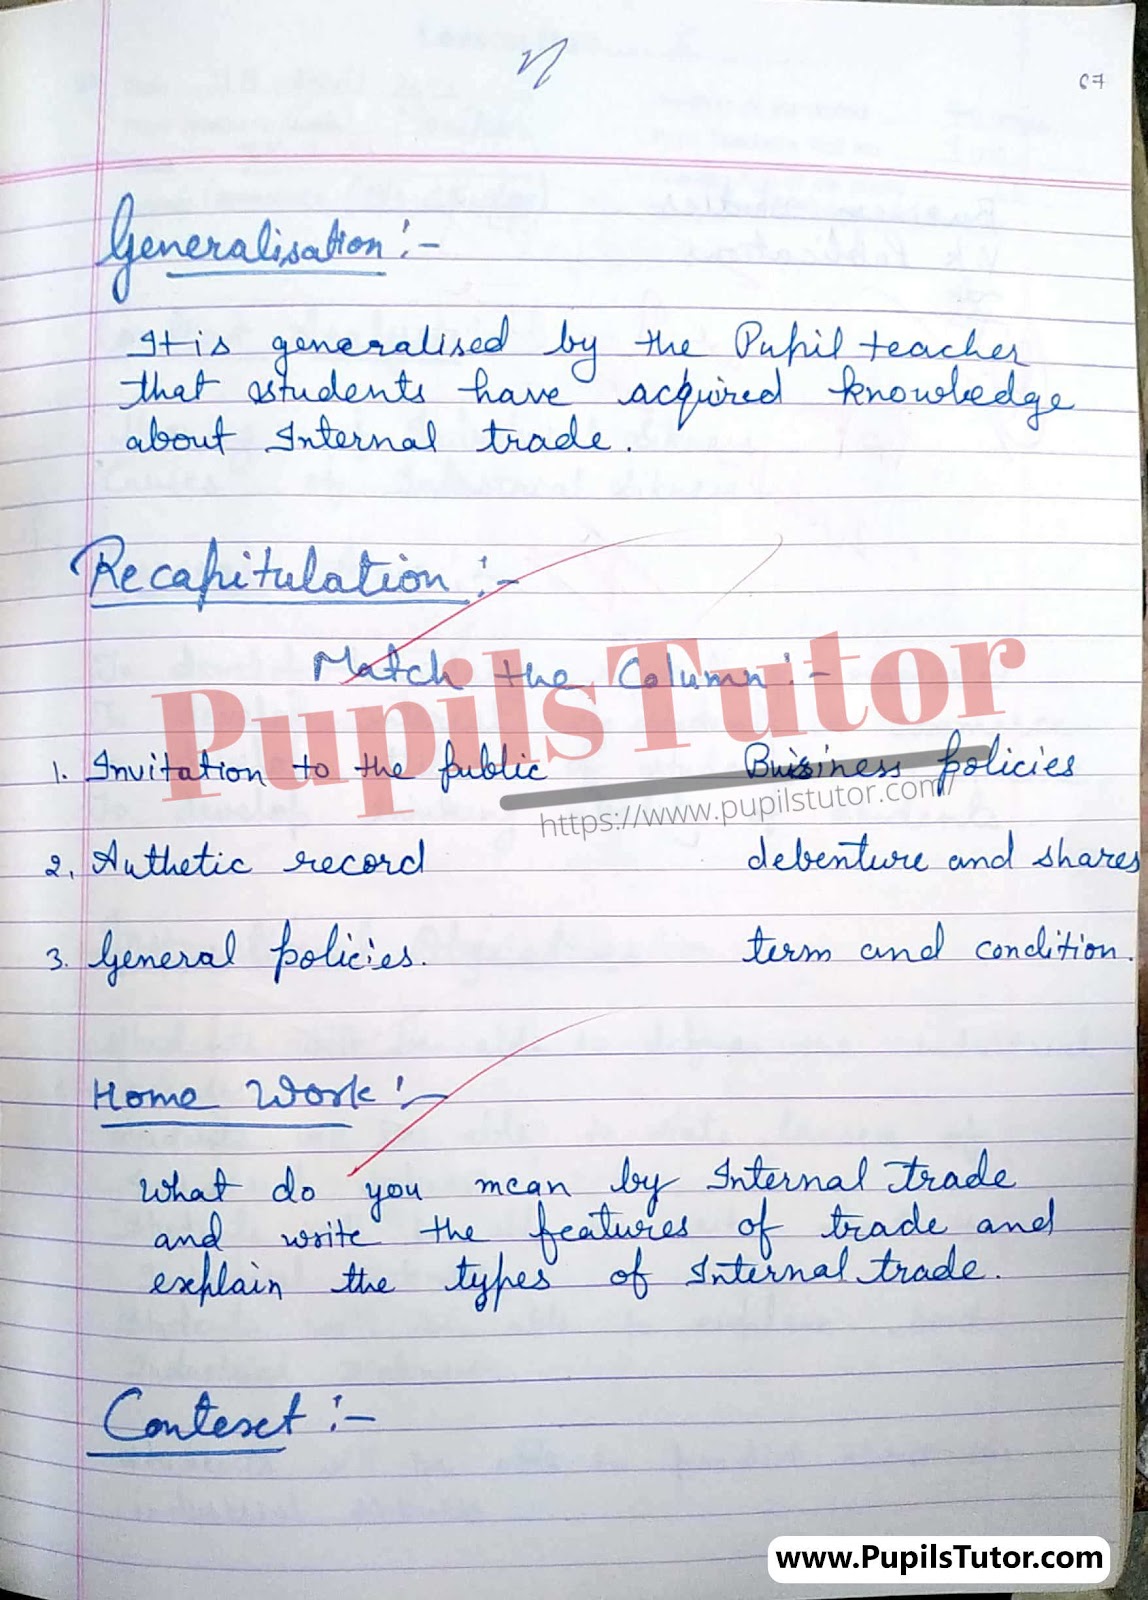 67
Generalisation :-
It is generalised by the Pupil teacher
that students have acquired knowledge
about Internal trade.
Recapitulation :-
Match the Column :-
PupilsTutor
https://www.pupilstutor.com/
1. Invitation to the public Buisiness policies
2. Authetic record debenture and shares
3. General policies. term and condition.
Home Work :-
What do you mean by Internal trade
and write the features of trade and
explain the types of Internal trade.
Context :-
www.PupilsTutor.com